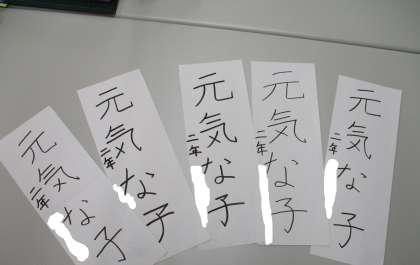 元気な子
二年
元気な子
二年
元気な子
二年
元気な子
二年
元気な子
二年